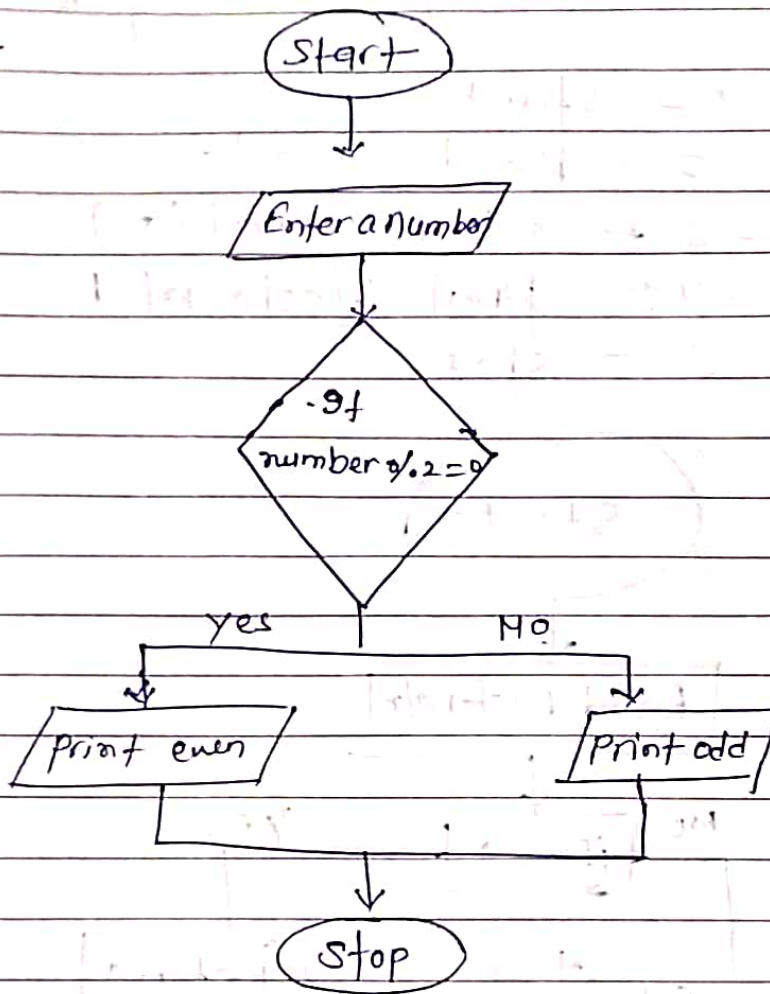 Start
Enter a number
If
number %.2=0
Yes
No
Print even
Print odd
Stop